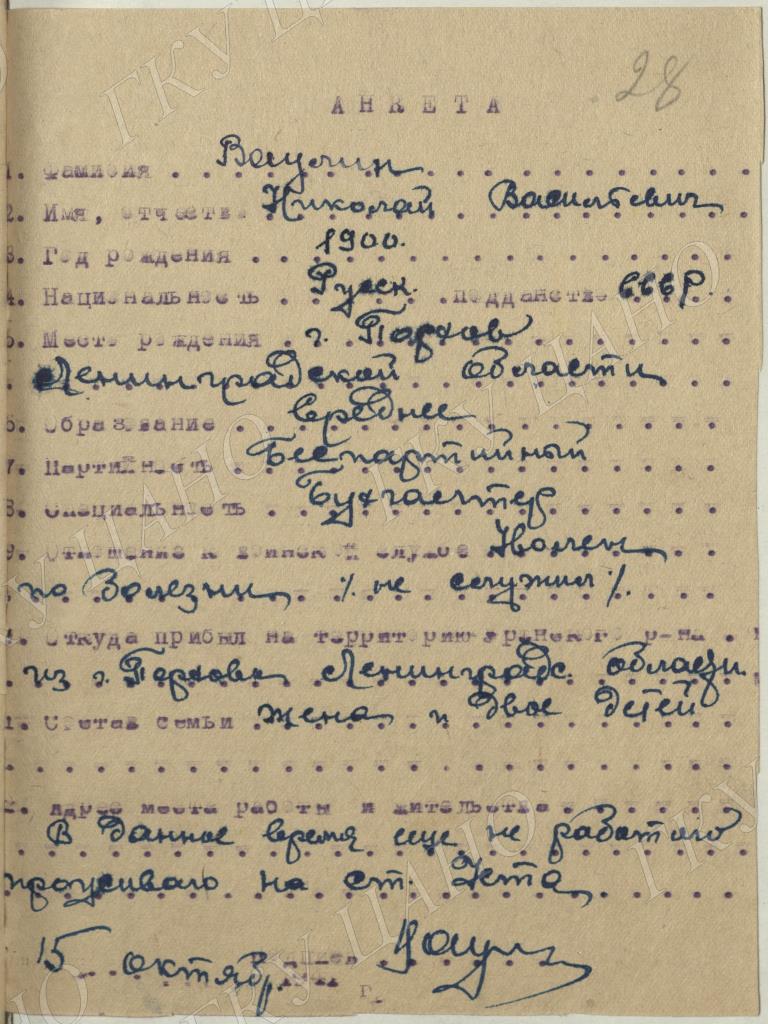 28
АНКЕТА
1. Фамилия Ваулин
2. Имя, отчество Николай Васильевич
3. Год рождения 1900.
4. Национальность Русск. подданство СССР
5. Место рождения г. Порхов
Ленинградской области
6. Образование среднее
7. Партийность Беспартийный
8. Специальность Бухгалтер
9. Отношение к воинской службе
по болезни ·/· не служил ·/·
Откуда прибыл на территорию р-на
из г. Порхова Ленинградс. области
Состав семьи жена и двое детей
Адрес места работы и жительства
В данное время еще не работаю
проживаю на ст. Уста
подпись Ваул
15 октябр. г.